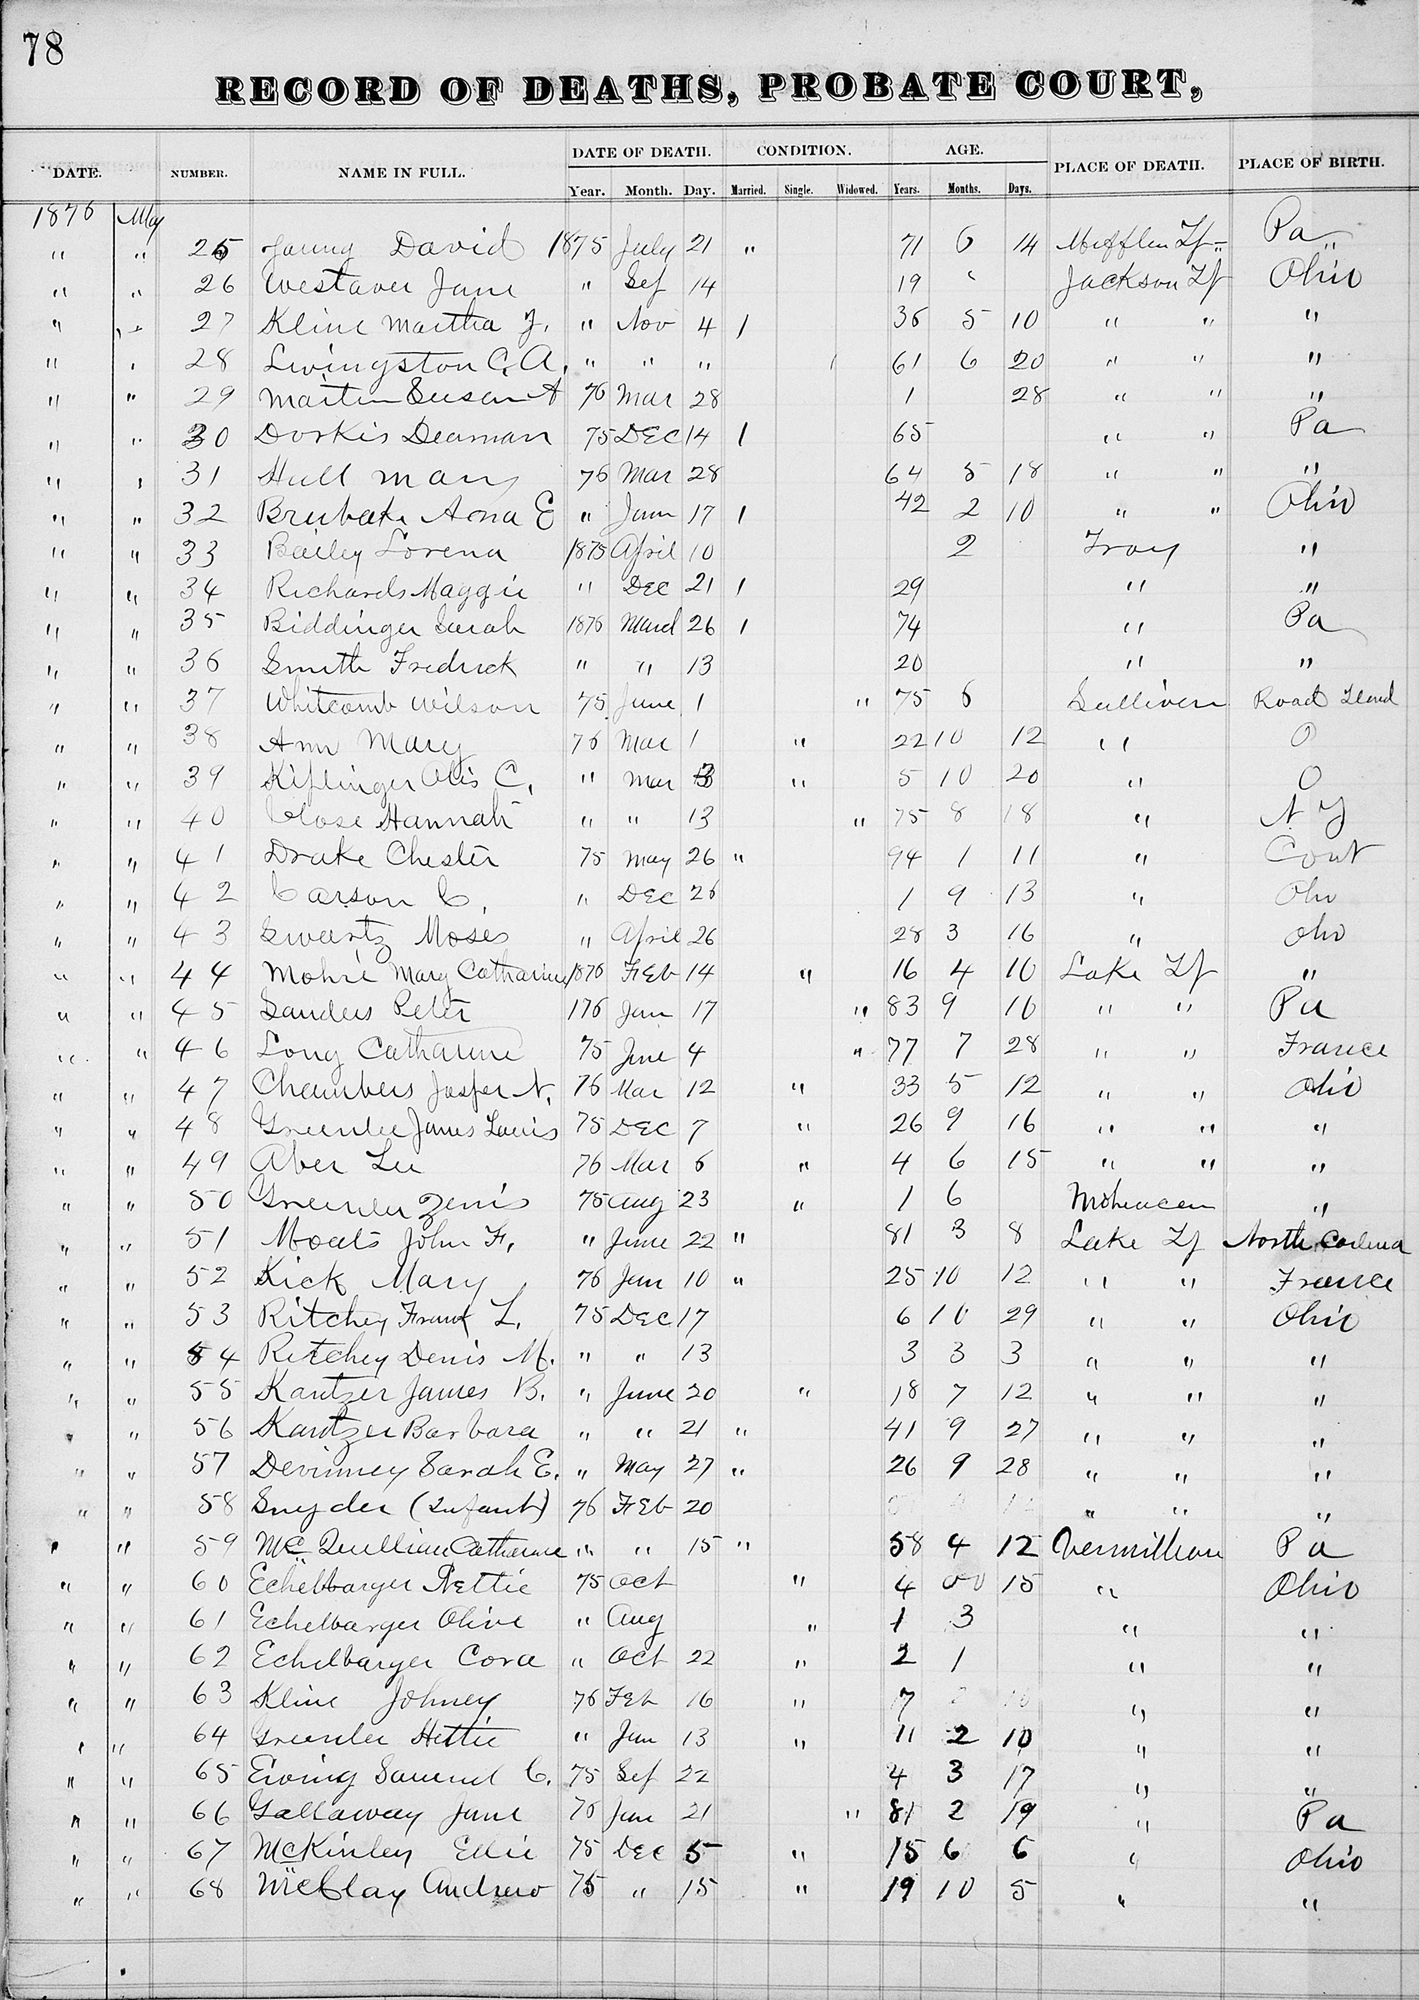 78
RECORD OF DEATHS, PROBATE COURT,
DATE. NUMBER. NAME IN FULL. DATE OF DEATH. CONDITION. AGE. PLACE OF DEATH. PLACE OF BIRTH.
Year. Month. Day. Married. Single. Widowed. Years. Months. Days.
1876 May
" " 25 Young David 1875 July 21 " 71 6 14 Mifflin Tp Pa
" " 26 Westaver Jane " Sep 14 19 " Jackson Tp Ohio
" " 27 Kline Martha J. " Nov 4 1 36 5 10 " " "
" " 28 Livingston C. A. " " " 1 61 6 20 " " "
" " 29 Martin Susan A 76 Mar 28 1 28 " " "
" " 30 Dorkis Deaman 75 DEC 14 1 65 " " Pa
" " 31 Hull Mary 76 Mar 28 64 5 18 " " "
" " 32 Brubake Anna E " Jan 17 1 42 2 10 " " Ohio
" " 33 Bailey Lorena 1875 April 10 2 Troy "
" " 34 Richards Maggie " Dec 21 1 29 " "
" " 35 Biddinger Sarah 1876 March 26 1 74 " Pa
" " 36 Smith Fredrick " " 13 20 " "
" " 37 Whitcomb Wilson 75 June 1 " 75 6 Sullivan Road Iland
" " 38 Ann Mary 76 Mar 1 " 22 10 12 " O
" " 39 Kiplinger Otis C. " Mar 3 " 5 10 20 " O
" " 40 Close Hannah " " 13 " 75 8 18 " N Y
" " 41 Drake Chester 75 May 26 " 94 1 11 " Cont
" " 42 Carson C. " DEC 26 1 9 13 " Oho
" " 43 Swartz Moses " April 26 28 3 16 " Oho
" " 44 Mohre Mary Catharine 1876 FEB 14 " 16 4 10 Lake Tp "
" " 45 Sanders Peter 176 Jan 17 " 83 9 10 " " Pa
" " 46 Long Catharine 75 June 4 " 77 7 28 " " France
" " 47 Chambers Jasper N. 76 Mar 12 " 33 5 12 " " Ohio
" " 48 Greenlee James Lewis 75 DEC 7 " 26 9 16 " " "
" " 49 Aber Lee 76 Mar 6 " 4 6 15 " " "
" " 50 Greenlee Zenis 75 Aug 23 " 1 6 Moheacan "
" " 51 Moats John F. " June 22 " 81 3 8 Lake Tp North Carlina
" " 52 Kick Mary 76 Jan 10 " 25 10 12 " " France
" " 53 Ritchey Frank L. 75 Dec 17 6 10 29 " " Ohio
" " 54 Ritchey Denis M. " " 13 3 3 3 " " "
" " 55 Kantzer James B. " June 20 " 18 7 12 " " "
" " 56 Kantzer Barbara " " 21 " 41 9 27 " " "
" " 57 Devinney Sarah E. " May 27 " 26 9 28 " " "
" " 58 Snyder (Infant) 76 FEB 20 " " "
" " 59 McQuillian Catharine " " 15 " 58 4 12 Vermillion Pa
" " 60 Echelbarger Nettie 75 Oct " 4 00 15 " Ohio
" " 61 Echelbarger Olive " Aug " 1 3 " "
" " 62 Echelbarger Cora " Oct 22 " 2 1 " "
" " 63 Kline Johney 76 Feb 16 " 7 " "
" " 64 Greenlee Hettie " Jan 13 " 11 2 10 " "
" " 65 Ewing Samuel C. 75 Sep 22 4 3 17 " "
" " 66 Gallaway Jane 76 Jan 21 " 81 2 19 " Pa
" " 67 McKinley Ellie 75 Dec 5 " 15 6 6 " Ohio
" " 68 McClay Andrew 75 " 15 " 19 10 5 " "